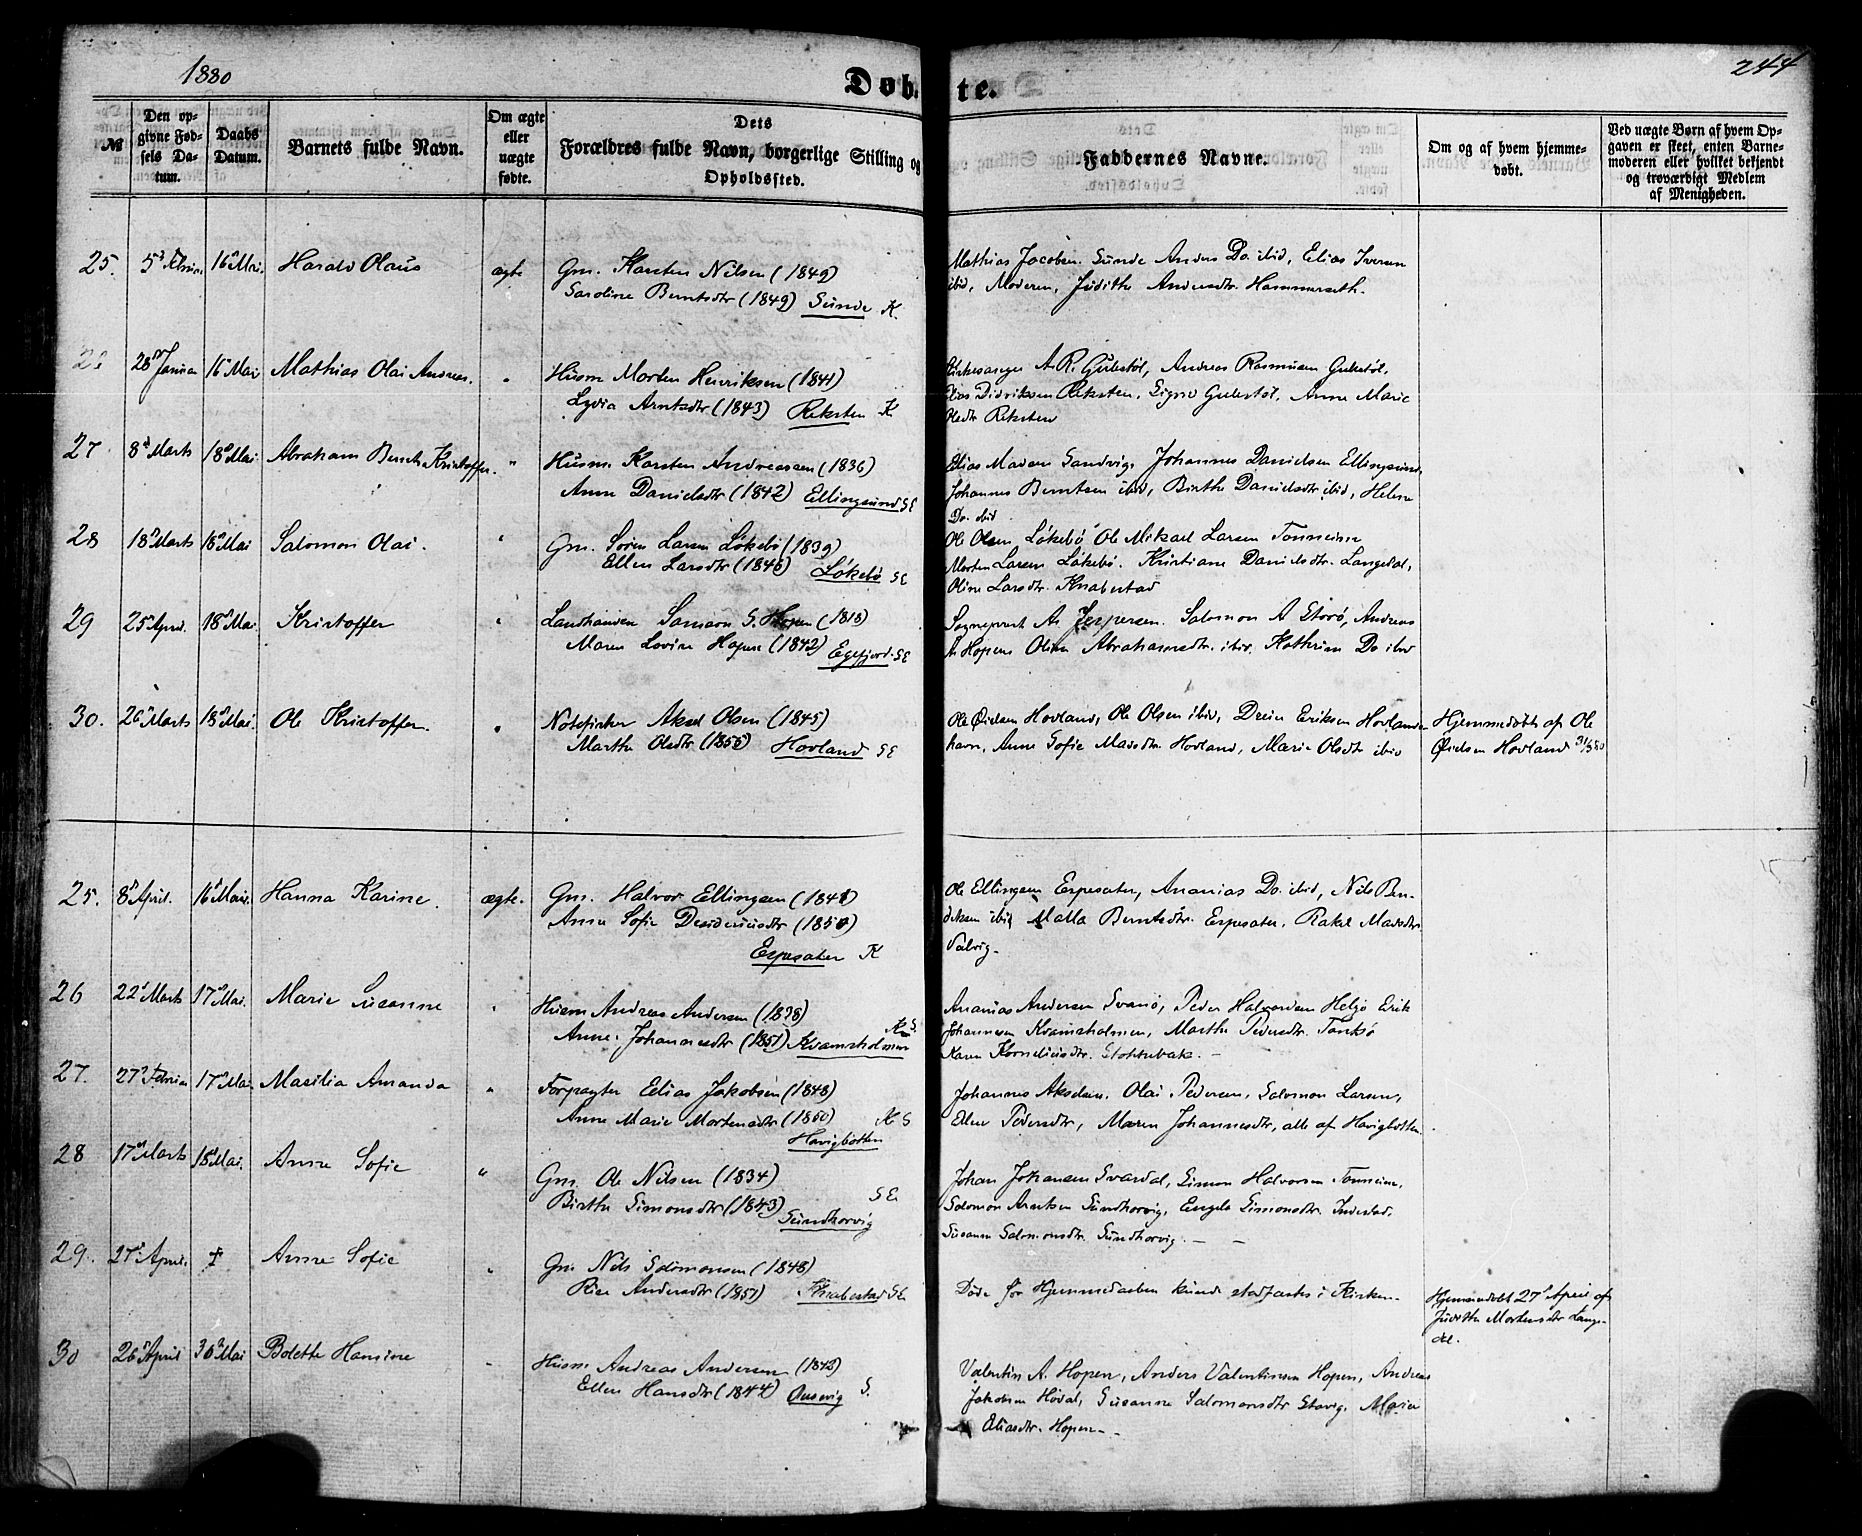 1880
Døbte.
244
№
Den opgivne Fødsels Datum.
Daabs Datum.
Barnets fulde Navn.
Om ægte eller uægte fødte.
Dets Forældres fulde Navn, borgerlige Stilling og Opholdssted.
Faddernes Navne.
Om og af hvem hjemmedøbt.
Ved uægte Børn af hvem Opgaven er skeet, enten Barnemoderen eller hvilket bekjendt og troværdigt Medlem af Menigheden.
25. 5 Febru. 16 Mai. Harald Olaus ægte Gm. Karsten Nilsen (1849)
Saroline Berntsdtr (1849) Sunde K.
Mathias Jacobsen Sunde Anders Do. ibid, Elias Iversen
ibid, Moderen, Judithe Andersdtr. Hammerseth.
26 28 Januar 16 Mai Mathias Olai Andreas. " Husm Morten Henriksen (1841)
Lydia Arntsdtr (1843) Reksten K
Kirkesanger A. R. Gulestøl, Andreas Rasmusen Gulestøl,
Elias Didriksen Reksten, Signe Gulestøl, Anne Marie
Olsdtr Reksten
27 8 Marts 18 Mai. Abraham Bernt Kristoffer. " Husm. Karsten Andreassen (1836)
Anne Danielsdtr (1842) Ellingsund SE
Elias Madsen Sandvig, Johannes Danielsen Ellingsund,
Johannes Berntsen ibid, Birthe Danielsdtr ibid, Helene
Do. ibid
28 18 Marts 18 Mai Salomon Olai. " Gm. Søren Larsen Løkebø (1839)
Ellen Larsdtr (1846) Løkebø SE
Ole Olsen Løkebø Ole Mikael Larsen Tonheim
Morten Larsen Løkebø. Kristiane Danielsdtr. Langedal,
Oline Larsdtr. Knabestad
29 25 April. 18 Mai. Kristoffer " Landhandler Samson S. Hopen (1818)
Maren Lovise Hopen (1842) Egefjord SE
Sogneprest A. Jespersen. Salomon A Storø, Andreas
A. Hopen Oline Abrahamsdtr. ibid. Kathrine Do ibid
30. 26 Marts 18 Mai Ole Kristoffer. " Notefisker Aksel Olsen (1845)
Marthe Olsdtr (1850) Hovland SE
Ole Øidsen Hovland, Ole Olsen ibid, Dreier Eriksen Hovlands
havn, Anne Sofie Madsdtr. Hovland, Marie Olsdtr ibid
Hjemmedøbt af Ole
Øidsen Hovland 31/3 80
25. 8 April. 16 Mai. Hanna Karine. ægte. Gm. Halvor Ellingsen (1841)
Anne Sofie Desideriusdtr (1850)
Espesæter K
Ole Ellingsen Espesæter, Ananias Do. ibid, Nils Ben-
diksen ibid Malla Berntsdtr. Espesæter, Rakel Madsdtr
Valvig.
26 22 Marts 17 Mai. Marie Susanne " Husm Andreas Andersen (1838)
Anne Johannesdtr (1851) Kvamsholmen K S.
Ananias Andersen Svanø, Peder Halvorsen Helgø Erik
Johannesen Kvamsholmen, Marthe Pedersdtr. Tansø
Karen Korneliusdtr. Stokkebak. -
27. 27 Febru 17 Mai Masilia Amanda " Forpagter Elias Jakobsen (1848)
Anne Marie Mortensdtr (1850) K S
Høvigbotten
Johannes Akselsen, Olai Pedersen, Salomon Larsen,
Ellen Pedersdtr, Maren Johannesdtr, alle af Høvigbotten.
28 17 Marts 18 Mai. Anne Sofie " Gm. Ole Nilsen (1834)
Birthe Simonsdtr (1843) SE
Sundhorvig
Johan Johansen Svardal, Simon Halvorsen Tonheim,
Salomon Arntsen Sundhorvig, Engele Simonsdtr. Indestad,
Susanne Salomonsdtr. Sundhorvig. - -
29. 27 April. † Anne Sofie " Gm. Nils Salomonsen (1848)
Rise Andersdtr (1851) Knabestad SE
Døde før Hjemmedaaben kunde stadfæstes i Kirken.
Hjemmedøbt 27 April af
Judithe Mortensdtr Lange-
dal.
30 26 April 30 Mai Bolette Hansine " Husm. Andreas Andersen (1843)
Ellen Hansdtr (1844) Ausevig S.
Valentin A. Hopen, Anders Valentinsen Hopen, Andreas
Jakobsen Høidal, Susanne Salomonsdtr Stavig, Maria
Eliasdtr. Hopen.